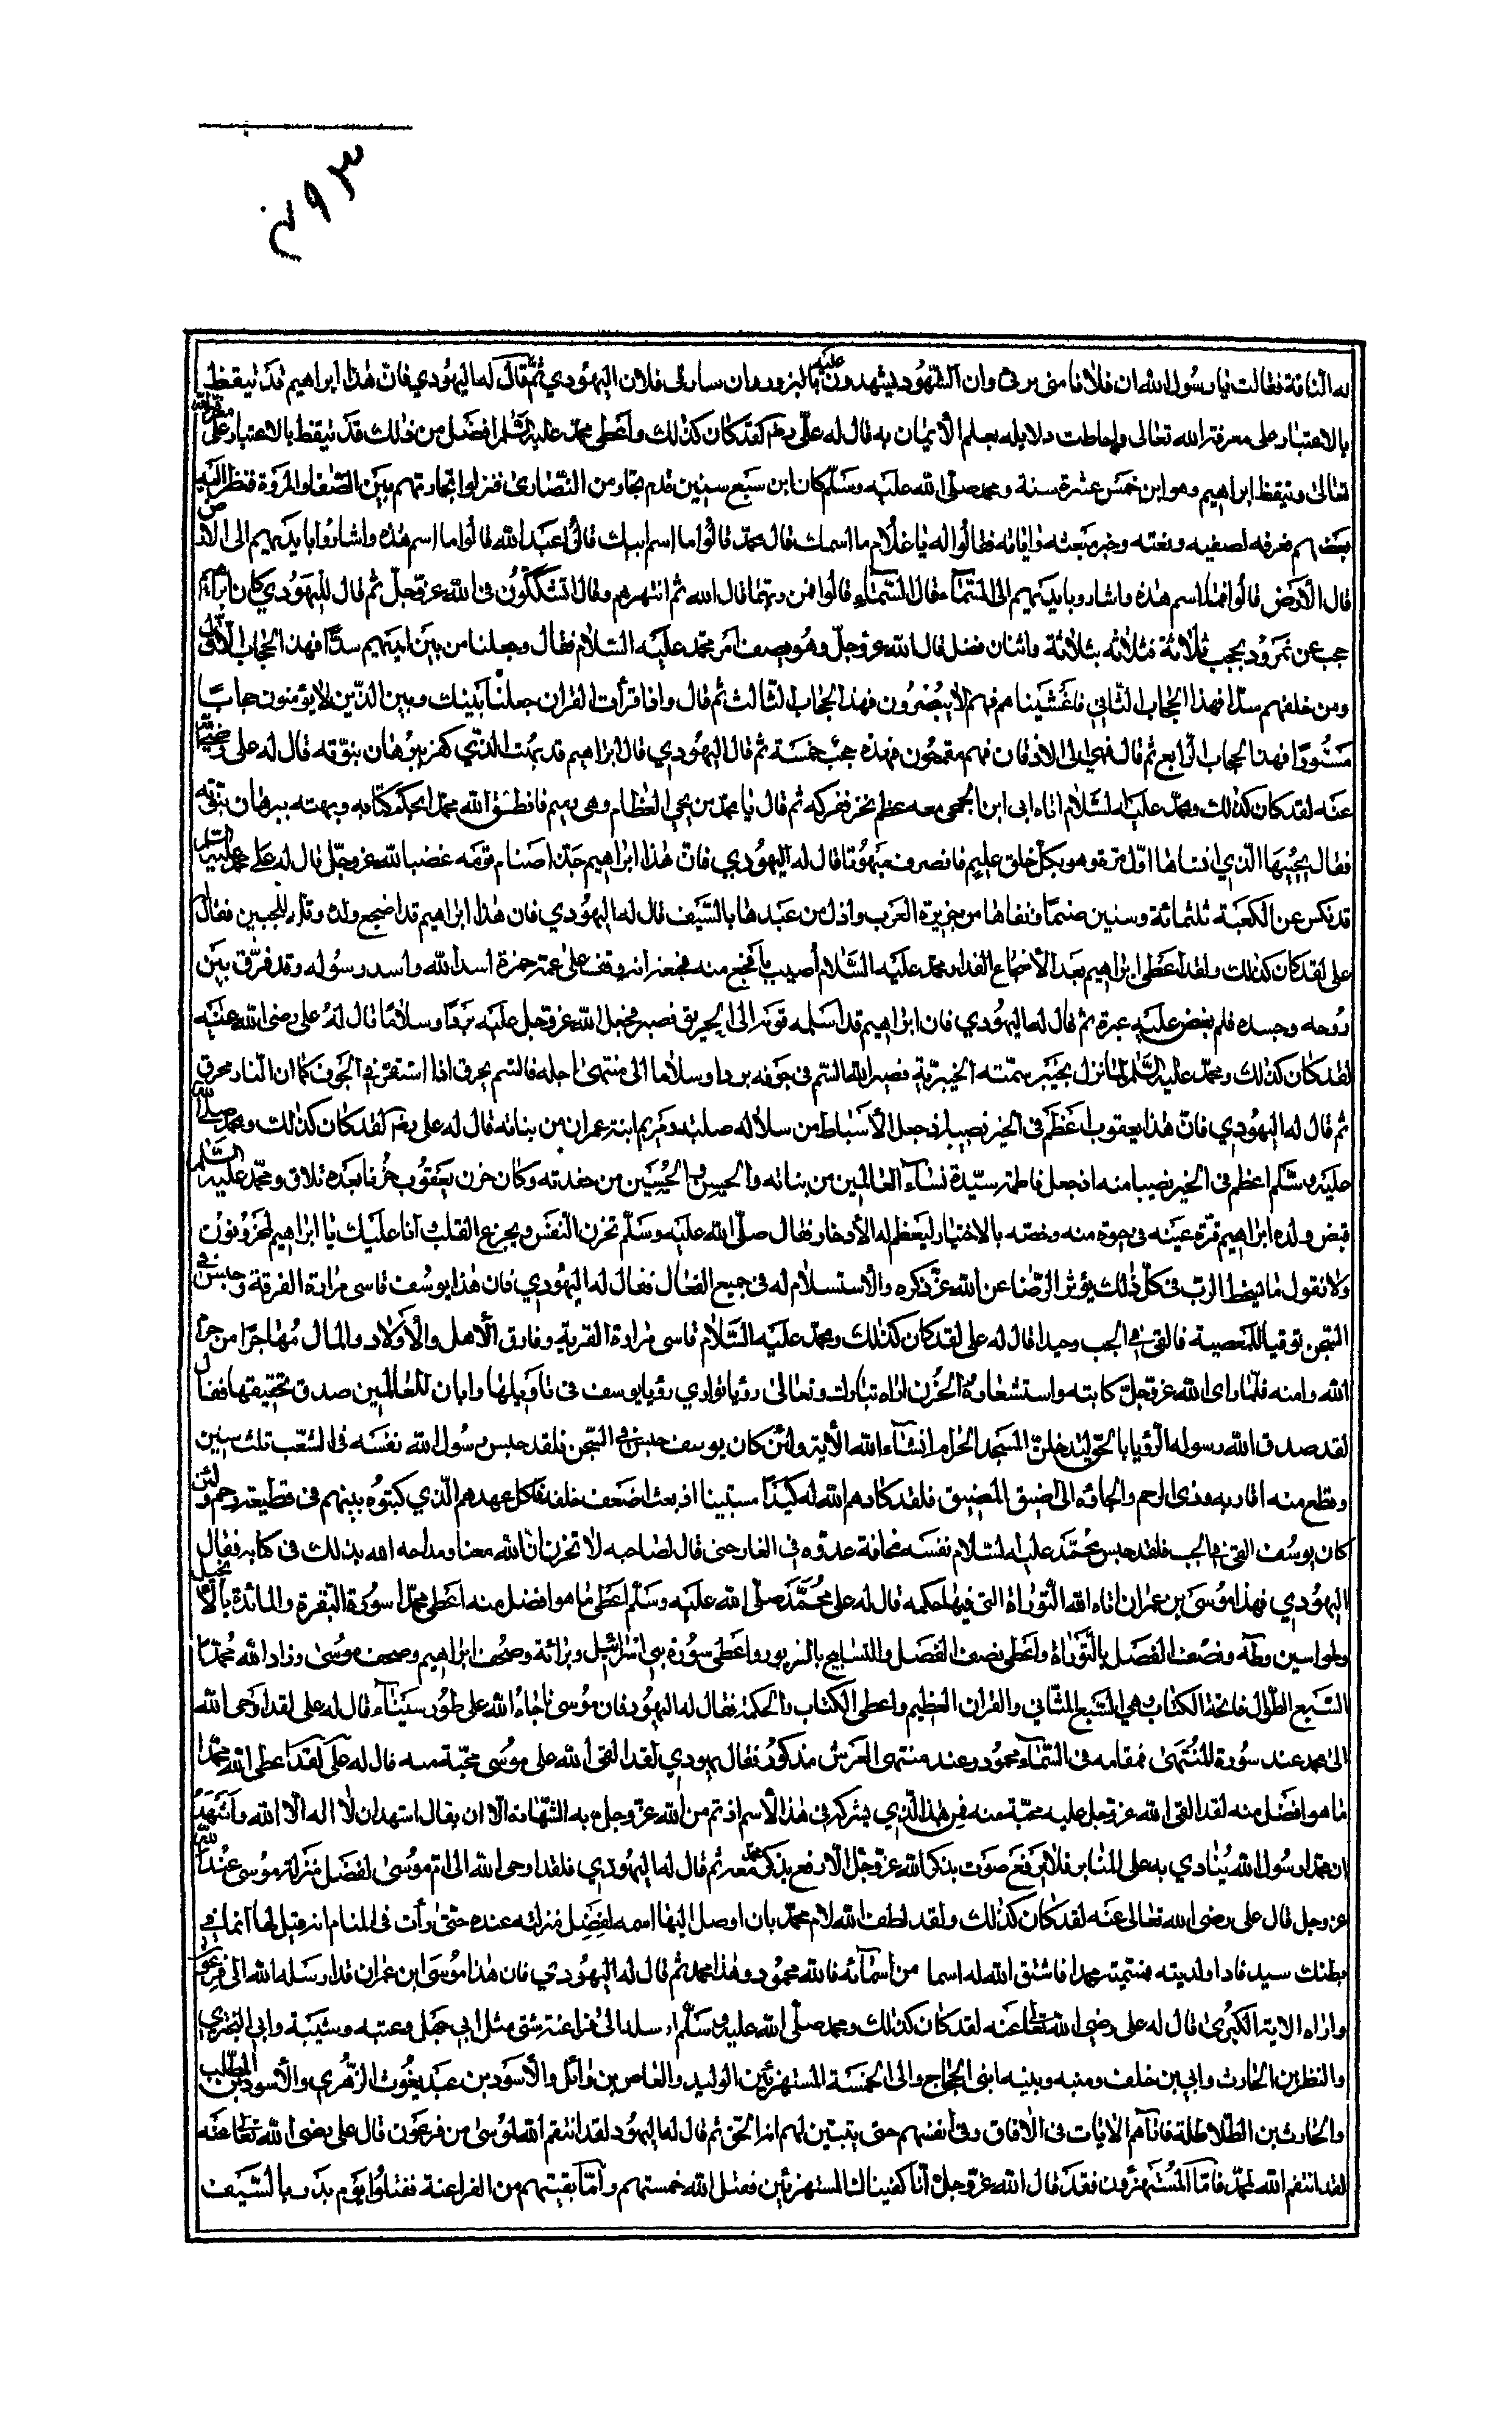 له الناقة فقالت يا رسول الله ان فلانا منى برئ وان الشهود يشهدون عليه بالزور وان سارقى فلان اليهودي ثم قال له اليهودي فان هذا ابراهيم قد تيقظ
بالاعتبار على معرفة الله تعالى واحاطت دلايله بعلم الايمان به قال له على رضى لقد كان كذلك واعطى محمد عليه السلم افضل من ذلك قد تيقظ بالاعتبار على معرفة الله
تعالى وتيقظ ابراهيم وهو ابن خمس عشرة سنة ومحمد صلى الله عليه وسلم كان ابن سبع سنين قدم تجار من النصارى فنزلوا بتجارتهم بين الصفا والمروة فنظر اليه
بعضهم فعرفه بصفته ونعته وخبر مبعثه واياته فقالوا له يا غلام ما اسمك قال محمد قالوا ما اسم ابيك قال عبد الله قالوا ما اسم هذه واشاروا بايديهم الى الارض
قال الارض قالوا فما اسم هذه واشاروا بايديهم الى السماء قال السماء قالوا فمن ربهما قال الله ثم انتهرهم وقال اتشككون فى الله عز وجل ثم قال اليهودي كان ابراهيم
حجب عن نمرود بحجب ثلاثة فثلاثة بثلاثة واثنان فضل قال الله عز وجل وهو يصف امر محمد عليه السلام فقال وجعلنا من بين ايديهم سدا فهذا الحجاب الاول
ومن خلفهم سدا فهذا الحجاب الثاني فاغشيناهم فهم لا يبصرون فهذا الحجاب الثالث ثم قال واذا قرأت القران جعلنا بينك وبين الذين لا يؤمنون حجابا
مستورا فهذا الحجاب الرابع ثم قال فهي الى الاذقان فهم مقمحون فهذه حجب خمسة ثم قال اليهودي قال ابراهيم قد بهت الذي كفر ببرهان بنوته قال له على رضى الله
عنه لقد كان كذلك ومحمد عليه السلام اتاه ابى ابن الجمحى معه عظم نخر ففركه ثم قال يا محمد من يحي العظام وهى رميم فانطق الله محمدا بحكم كتابه وبهته ببرهان بنوته
فقال يحييها الذي انشاها اول مرة وهو بكل خلق عليم فانصرف مبهوتا قال له اليهودي فان هذا ابراهيم جذ اصنام قومه غضبا لله عز وجل قال له على محمد عليه السلم
قد نكس عن الكعبة ثلثمائة وستين صنما ونفاها من جزيرة العرب واذل من عبدها بالسيف قال له اليهودي فان هذا ابراهيم قد اضجع ولده وتله للجبين فقال
على لقد كان كذلك ولقد اعطى ابراهيم بعد الاضجاع الفداء ومحمد عليه السلام اصيب بافجع منه فجيعة انه وقف على عمه حمزة اسد الله واسد رسوله وقد فرق بين
روحه وجسده فلم يفض عليه عبرة ثم قال له اليهودي فان ابراهيم قد اسلمه قومه الى الحريق فصبر فجعل الله عز وجل عليه بردا وسلاما قال له على رضى الله عنه
لقد كان كذلك ومحمد عليه السلم لما نزل بخيبر سمته الخيبرية فصير الله السم فى جوفه بردا وسلاما الى منتهى اجله فالسم يحرق اذا استقر في الجوف كما ان النار تحرق
ثم قال له اليهودي فان هذا يعقوب اعظم فى الخير نصيبه اذ جعل الاسباط من سلالة صلبه ومريم ابنة عمران من بناته قال له على رضى لقد كان كذلك ومحمد صلى الله
عليه وسلم اعظم فى الخير نصيبا منه اذ جعل فاطمة سيدة نساء العالمين من بناته والحسن والحسين من حفدته وكان حزن يعقوب حزنا بعده تلاق ومحمد عليه السلم
قبض ولده ابراهيم قرة عينه فى حيوة منه وخصه بالاختيار ليعظم له الادخار فقال صلى الله عليه وسلم تحزن النفس ويجزع القلب وانا عليك يا ابراهيم لمحزونون
ولا نقول ما يسخط الرب فى كل ذلك يؤثر الرضا عن الله عز ذكره والاستسلام له فى جميع الفعال فقال له اليهودي فان هذا يوسف قاسى مرارة الفرقة وحبس في
السجن توقيا للمعصية فالقى في الجب وحيدا قال له على لقد كان كذلك ومحمد عليه السلام قاسى مرارة الغربة وفارق الاهل والاولاد والمال مهاجرا من حرم
الله وامنه فلما راى الله عز وجل كابته واستشعاره الحزن اراه تبارك وتعالى رؤيا توازي رؤيا يوسف فى تاويلها وابان للعالمين صدق تحقيقها فقال
لقد صدق الله رسوله الرؤيا بالحق لتدخلن المسجد الحرام انشاء الله الاية ولئن كان يوسف حبس في السجن فلقد حبس رسول الله نفسه فى الشعب ثلث سنين
وقطع منه اقاربه وذى الرحم والجاؤه الى اضيق المضيق فلقد كادهم الله له كيدا مستبينا اذ بعث اضعف خلقه فاكل عهدهم الذي كتبوه بينهم فى قطيعة رحمه ولئن
كان يوسف القى في الجب فلقد حبس محمد عليه السلام نفسه مخافة عدوه في الغار حتى قال لصاحبه لا تحزن ان الله معنا ومدحه الله بذلك فى كتابه فقال
اليهودي فهذا موسى بن عمران اتاه الله التوراة التى فيها حكمه قال له على محمد صلى الله عليه وسلم اعطى ما هو افضل منه اعطى محمد سورة البقرة والمائدة بالانجيل
وطواسين وطه ونصف المفصل بالتوراة واعطى نصف المفصل والتسابيح بالزبور واعطى سورة بنى اسرائيل وبرائة وصحف ابراهيم وصحف موسى وزاد الله محمدا
السبع الطوال فاتحة الكتاب وهي السبع المثاني والقران العظيم واعطى الكتاب والحكمة فقال له اليهود فان موسى ناجاه الله على طور سيناء قال له على لقد اوحى الله
الى محمد عند سورة المنتهى فمقامه فى السماء محمود وعند منتهى العرش مذكور فقال يهودي لقد القى الله على موسى محبة منه قال له على لقد اعطى الله محمدا
ما هو افضل منه لقد القى الله عز وجل عليه محبة منه فمن هذا الذي يشركه فى هذا الاسم اذ تم من الله عز وجل به الشهادة الا ان يقال اشهد ان لا اله الا الله واشهد
ان محمدا رسول الله ينادي به على المنابر فلا يرفع صوت بذكر الله عز وجل الا رفع بذكر محمد معه ثم قال له اليهودي فلقد اوحى الله الى ام موسى لفضل منزلة موسى عند الله
عز وجل قال على رضى الله تعالى عنه لقد كان كذلك ولقد لطف الله لام محمد بان اوصل اليها اسمه لفضل منزلته عنده حتى رأت فى المنام انه قيل لها انما في
بطنك سيد فاذا ولديته فسميه محمدا فاشتق الله له اسما من اسمائه فالله محمود وهذا محمد ثم قال له اليهودي فان هذا موسى ابن عمران قد ارسله الله الى فرعون
واراه الاية الكبرى قال له على رضي الله تعالى عنه لقد كان كذلك ومحمد صلى الله عليه وسلم ارسله الى فراعنة شتى مثل ابي جهل وعتبه وشيبة وابي البختري
والنظر بن الحارث وابي بن خلف ومنبه ونبيه ابنى الحجاج والى الخمسة المستهزئين الوليد والعاص بن وائل والاسود بن عبد يغوث الزهري والاسود بن المطلب
والحارث بن الطلاطلة فاتاهم الايات فى الافاق وفى انفسهم حتى يتبين لهم انه الحق ثم قال له اليهود لقد انتقم الله لموسى من فرعون قال على رضى الله تعالى عنه
لقد انتقم الله لمحمد فاما المستهزؤن فقد قال الله عز وجل انا كفيناك المستهزئين فقتل الله خمستهم واما بقيتهم من الفراعنة فقتلوا يوم بدر بالسيف